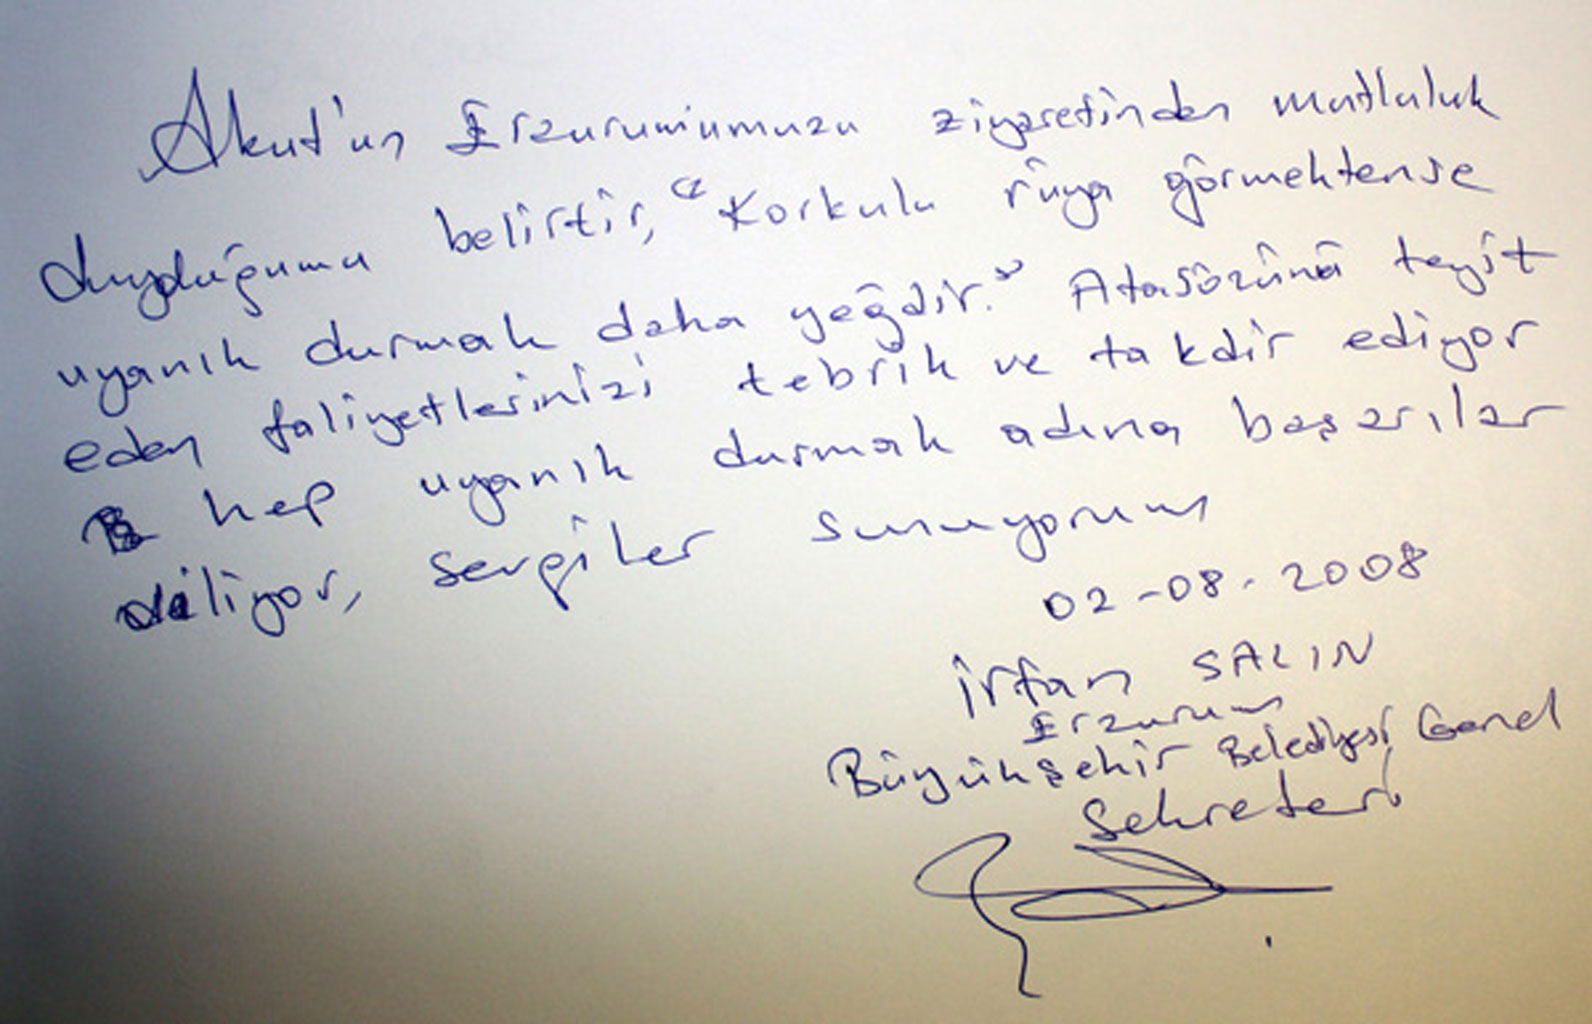 Akut'un Erzurumumuzu ziyaretinden mutluluk
duyduğumu belirtir, "Korkulu rüya görmektense
uyanık durmak daha yeğdir." Atasözünü teyit
eden faliyetlerinizi tebrik ve takdir ediyor
hep uyanık durmak adına başarılar
diliyor, sevgiler sunuyorum
02-08-2008
İrfan SALIN
Erzurum
Büyükşehir Belediyesi Genel
Sekreteri